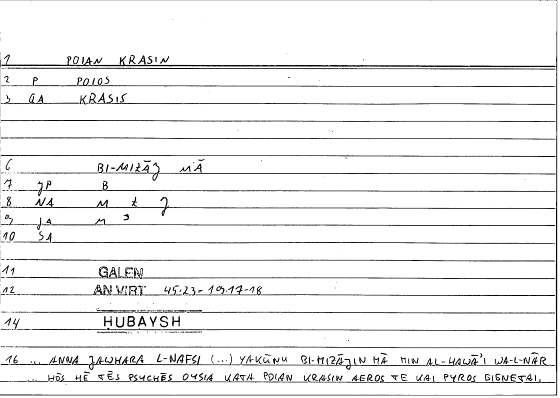 1 POIAN KRASIN
2 P POIOS
3 GA KRASIS
6 BI-MIZĀǦ MĀ
7 JP B
8 NA M Z Ǧ
9 JA M
10 SA
11 GALEN
12 AN VIRT 45.23 = 19.17-18
14 HUBAYSH
16 ... ANNA ǦAWHARA L-NAFSI (...) YAKŪNU BI-MIZĀǦIN MĀ MIN AL-HAWĀ'I WA-L-NĀR
... HŌS HĒ TĒS PSYCHĒS OYSIA KATA POIAN KRASIN AEROS TE KAI PYROS GIGNETAI.